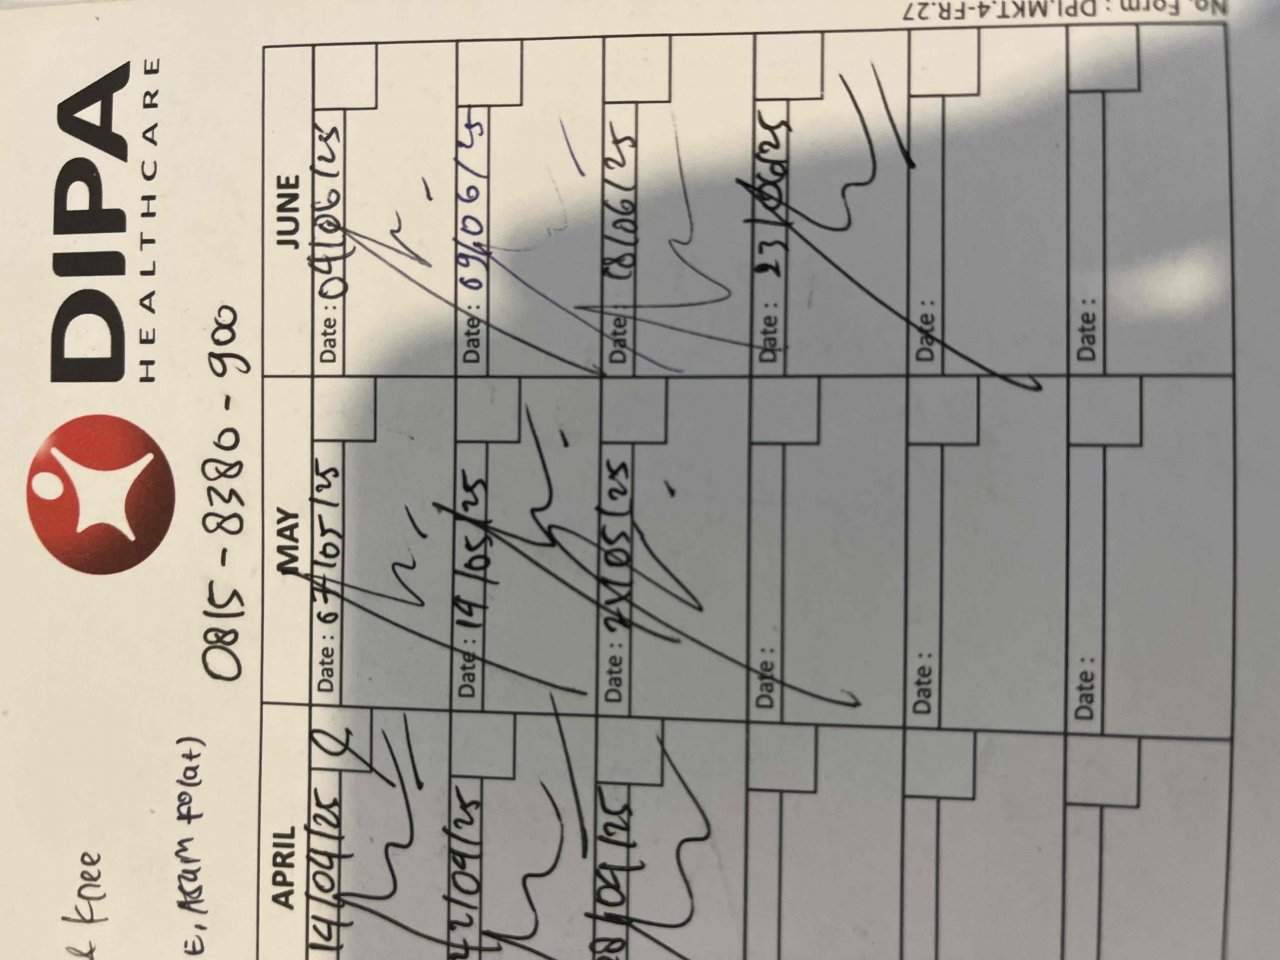 DIPA
HEALTHCARE
& Knee
E, Asam Folat)
0815-8380-900
APRIL
MAY
JUNE
14/04/25
Date : 07/05/25
Date : 04/06/25
22/04/25
Date : 14/05/25
Date : 09/06/25
28/04/25
Date : 21/05/25
Date : 18/06/25
Date :
Date : 23/06/25
Date :
Date :
Date :
Date :
No. Form : DPI.MKT.4-FR.27